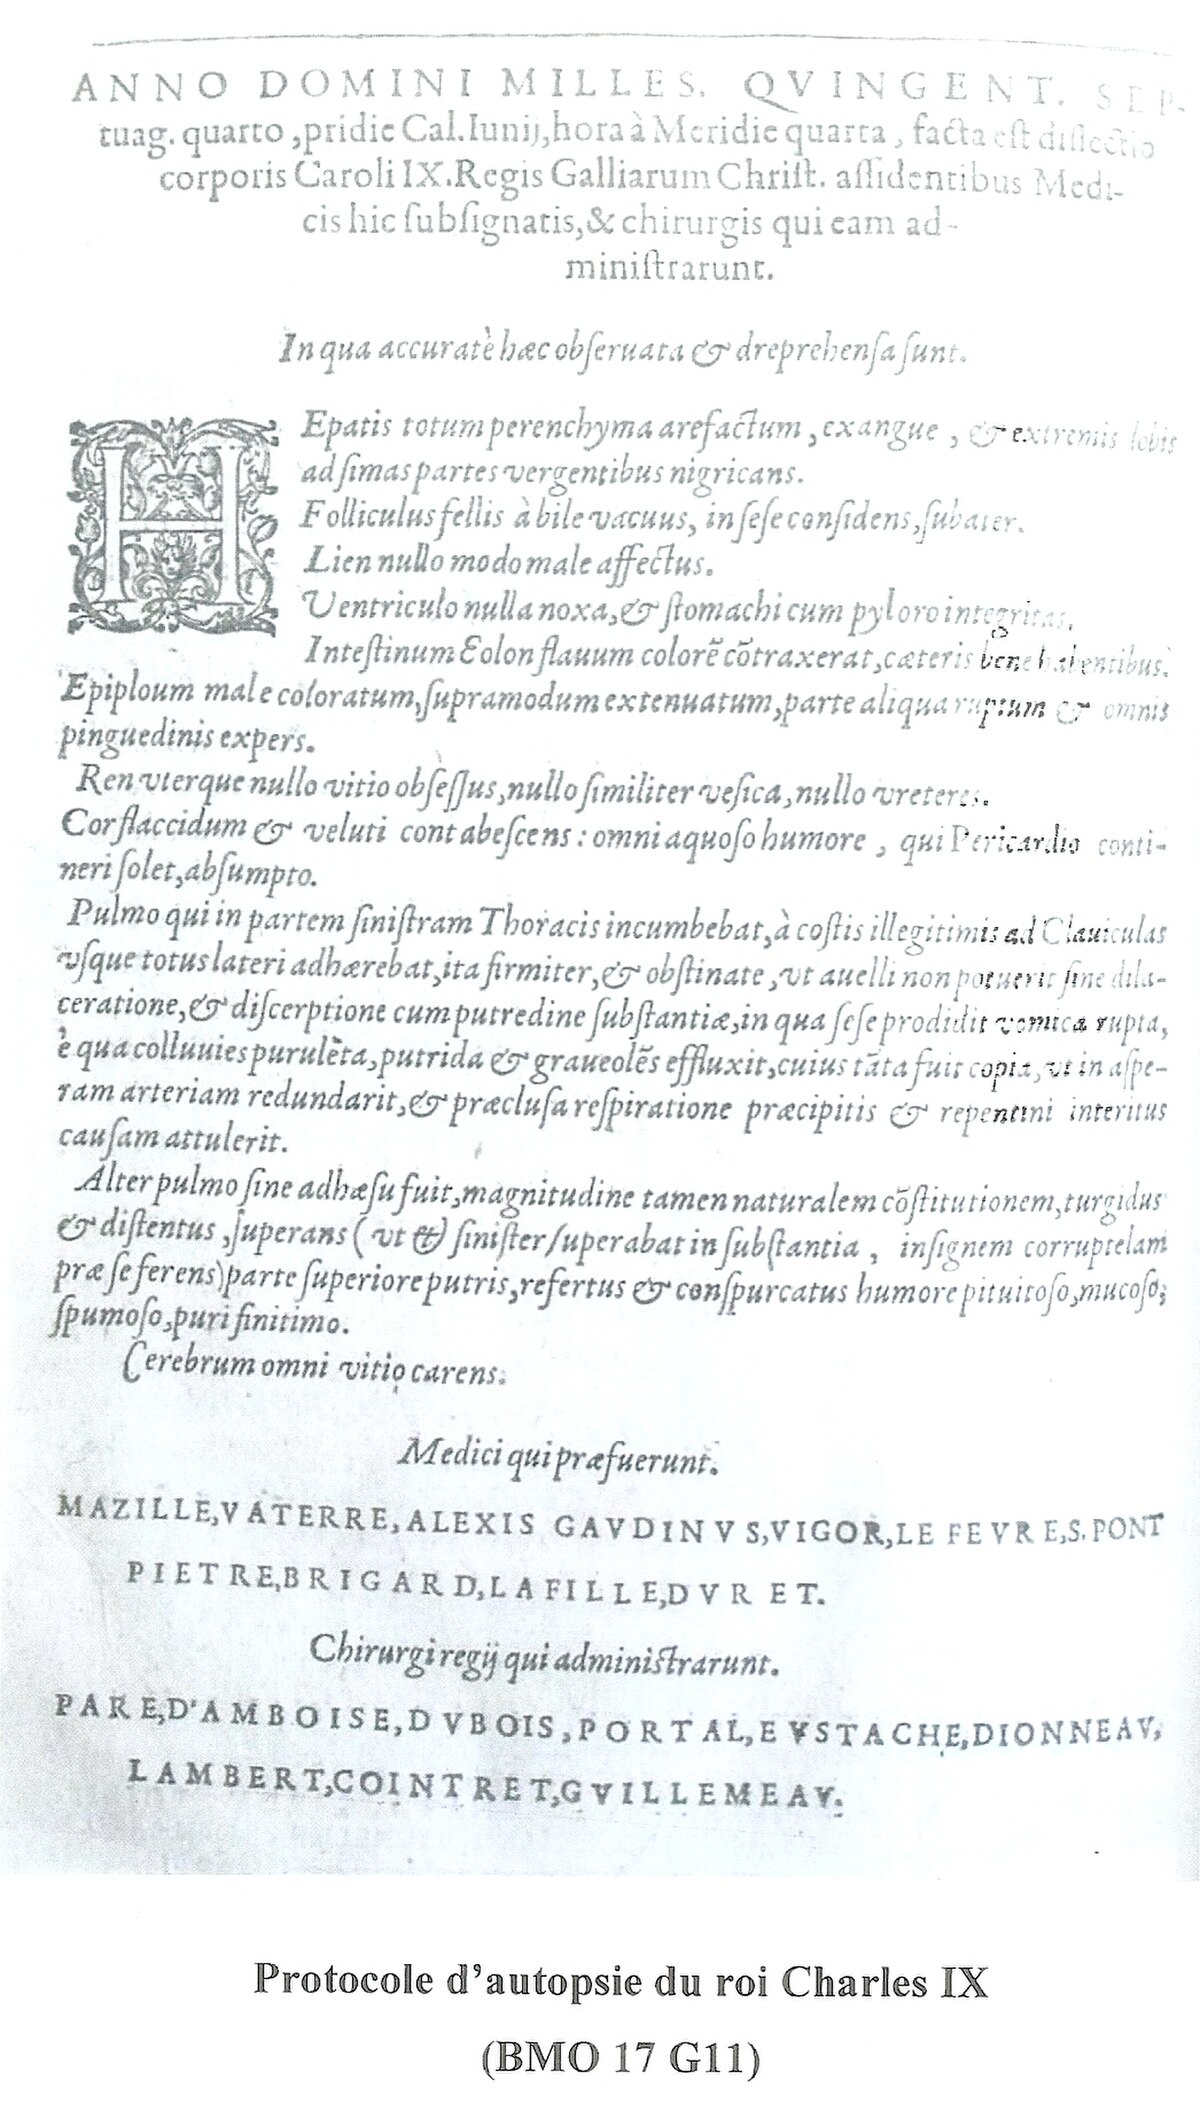 ANNO DOMINI MILLES. QVINGENT. SEP-
tuag. quarto, pridie Cal. Iunij, hora à Meridie quarta, facta est dissectio
corporis Caroli IX. Regis Galliarum Christ. assidentibus Medi-
cis hic subsignatis, & chirurgis qui eam ad-
ministrarunt.
In qua accuratè hæc obseruata & dreprehensa sunt.
HEpatis totum perenchyma arefactum, exangue, & extremis lobis
ad simas partes vergentibus nigricans.
Folliculus fellis à bile vacuus, in sese considens, subater.
Lien nullo modo male affectus.
Ventriculo nulla noxa, & stomachi cum pyloro integritas.
Intestinum Colon flauum colorē cōtraxerat, cæteris bene habentibus.
Epiploum male coloratum, supramodum extenuatum, parte aliqua ruptum & omnis
pinguedinis expers.
Ren vterque nullo vitio obsessus, nullo similiter vesica, nullo vreteres.
Cor flaccidum & veluti contabescens: omni aquoso humore, qui Pericardio conti-
neri solet, absumpto.
Pulmo qui in partem sinistram Thoracis incumbebat, à costis illegitimis ad Clauiculas
vsque totus lateri adhærebat, ita firmiter, & obstinate, vt auelli non potuerit sine dila-
ceratione, & discerptione cum putredine substantiæ, in qua sese prodidit vomica rupta,
è qua colluuies purulēta, putrida & graueolēs effluxit, cuius tāta fuit copia, vt in aspe-
ram arteriam redundarit, & præclusa respiratione præcipitis & repentini interitus
causam attulerit.
Alter pulmo sine adhæsu fuit, magnitudine tamen naturalem cōstitutionem, turgidus
& distentus, superans (vt & sinister superabat in substantia, insignem corruptelam
præ se ferens) parte superiore putris, refertus & conspurcatus humore pituitoso, mucoso,
spumoso, puri finitimo.
Cerebrum omni vitio carens.
Medici qui præfuerunt.
MAZILLE, VATERRE, ALEXIS GAVDINVS, VIGOR, LE FEVRE, S. PONT
PIETRE, BRIGARD, LAFILLE, DVRET.
Chirurgi regij qui administrarunt.
PARE, D'AMBOISE, DVBOIS, PORTAL, EVSTACHE, DIONNEAV,
LAMBERT, COINTRET, GVILLEMEAV.
Protocole d'autopsie du roi Charles IX
(BMO 17 G11)